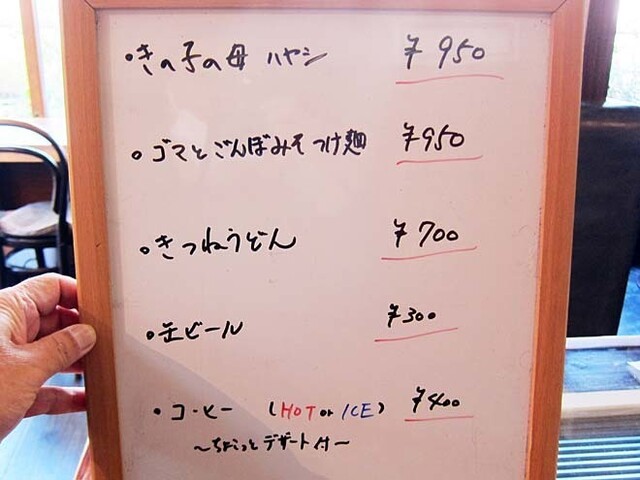 ・きの子の母 ハヤシ ¥950
・ゴマとごんぼみそつけ麺 ¥950
・きつねうどん ¥700
・缶ビール ¥300
・コーヒー (HOT or ICE) ¥400
〜ちょこっとデザート付〜